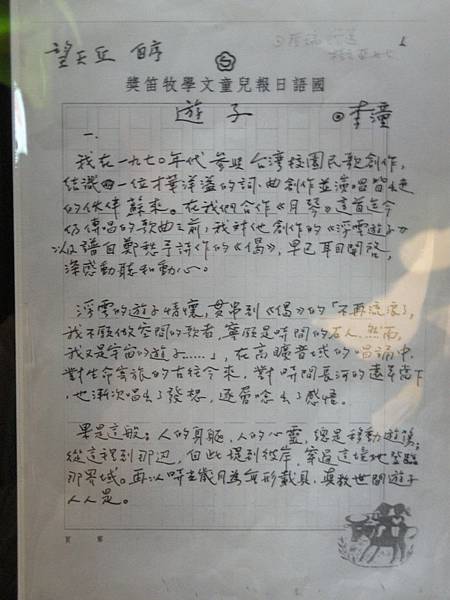 望天丘 自序
國語日報兒童文學牧笛獎
遊子 ◎李潼
一.
我在一九七○年代參與台灣校園民歌創作,
結識一位才華洋溢的詞、曲創作並演唱皆
的伙伴蘇來。在我們合作《月琴》這首迄今
仍傳唱的歌曲之前,我對他創作的《浮雲遊子》
以及譜自鄭愁予詩作的《偈》,早已耳目開啓,
深感動聽和動心。
浮雲的遊子情懷,貫串到《偈》的「不再流浪了,
我不願做空間的歌者,寧願是時間的石人。然而,
我又是宇宙的遊子……」,在高曠音域的唱誦中,
對生命寄旅的古往今來,對時間長河的
也漸次唱出了發想,逐層唸出了感悟。
果是這般:人的身軀,人的心靈,總是移動遊徙;
從這裡到那边,自此堤到彼岸,
那界域。再以時光歲月為無形載具,真教世間遊子
人人是。